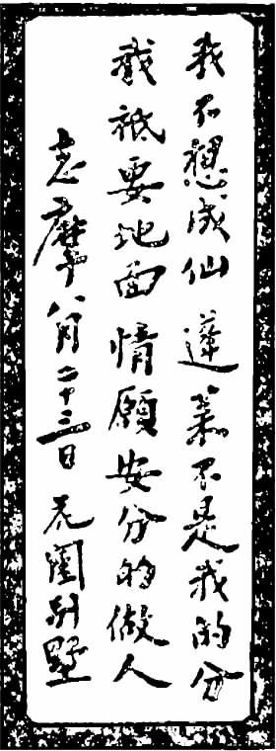 我不想成仙蓬莱不是我的分
我祇要地面情願安分的做人
志摩八月二十三日花園别墅